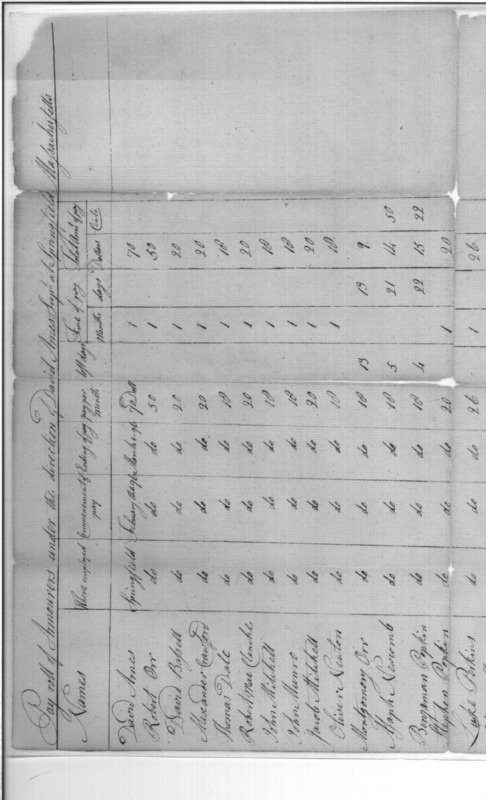 Pay roll of Armourers under the direction of David Ames Supt at Springfield Massachusetts
Names Where employed Commencement of pay Ending of pay pay per Month days Time of pay Months days Dollars Cents
David Ames Springfield 70 Doll 1 70
Robert Orr do do do 50 1 50
David Bissell do do do 20 1 20
Alexander Crawford do do do 20 1 20
Thomas Dale do do do 18 1 18
Robert do do do 20 1 20
John Mitchell do do do 18 1 18
John Munro do do do 18 1 18
Jacob Mitchell do do do 20 1 20
Oliver Newton do do do 18 1 18
Montgomery Orr do do do 18 13 13 9
Newcomb do do do 18 5 21 14 50
Benjamin Pipkin do do do 18 4 22 15 22
Stephen Pipkin do do do 20 1 20
Luke Perkins do do do 26 1 26